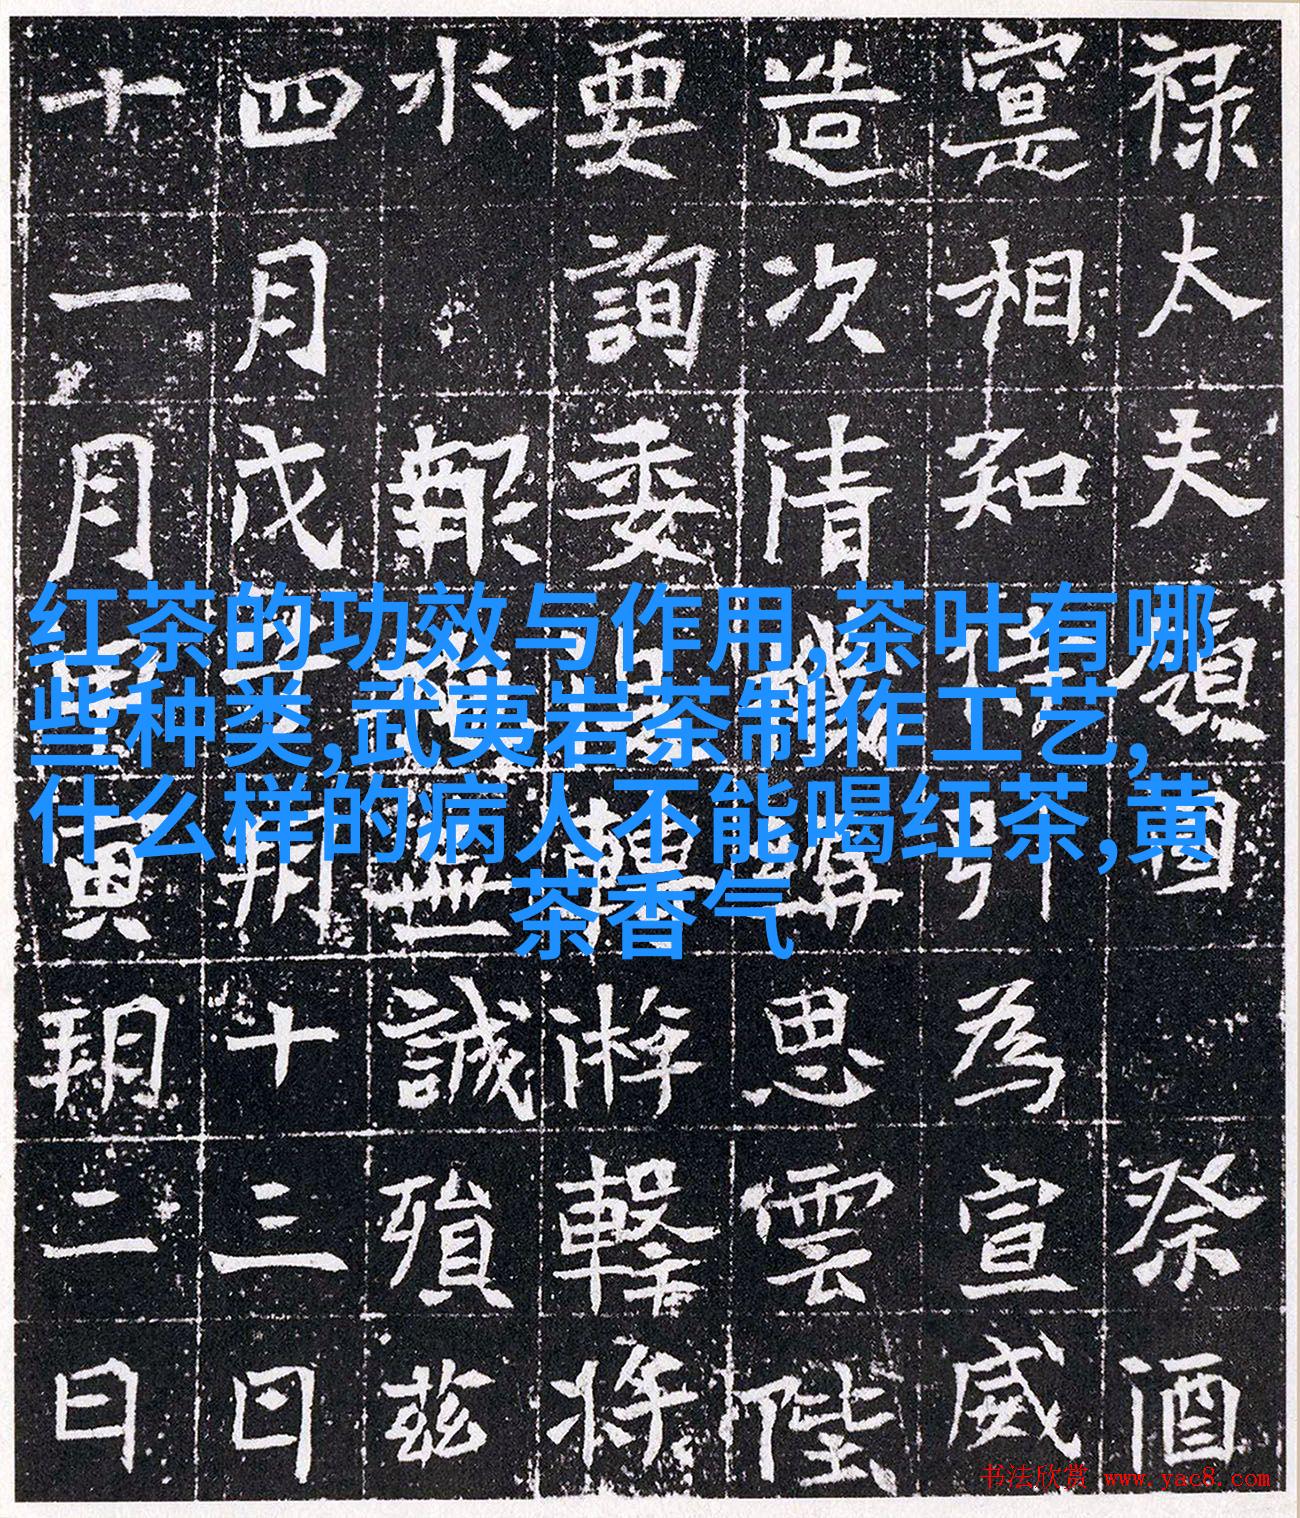 禄太夫祭酒
寔相知引為宣威
造次清講思雲陛
要詢委游擊將
水報無誠殞茲
四月戊朔十三日
十一月寅朔二日
红茶的功效与作用,茶叶有哪
些种类,武夷岩茶制作工艺,
什么样的病人不能喝红茶,黄
茶香气
书法欣赏 www.yac8.com